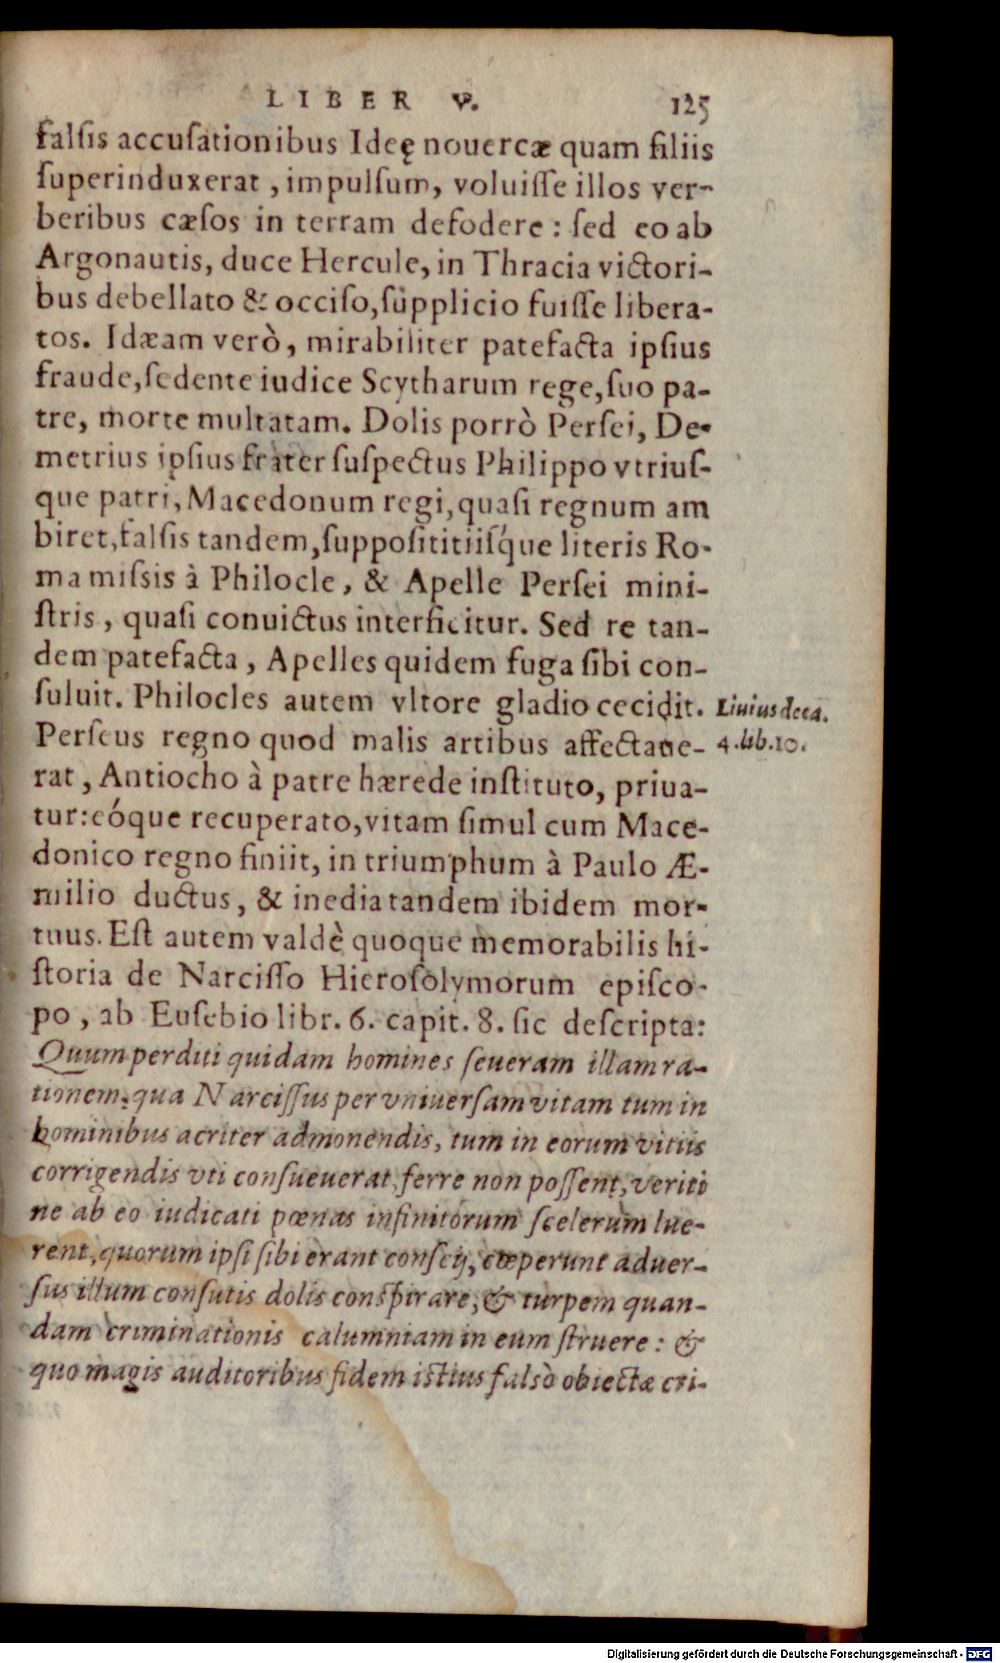 LIBER V. 125
falſis accuſationibus Ideę nouercæ quam filiis
ſuperinduxerat, impulſum, voluiſſe illos ver-
beribus cæſos in terram defodere : ſed eo ab
Argonautis, duce Hercule, in Thracia victori-
bus debellato & occiſo, ſupplicio fuiſſe libera-
tos. Idæam verò, mirabiliter patefacta ipſius
fraude, ſedente iudice Scytharum rege, ſuo pa-
tre, morte multatam. Dolis porrò Perſei, De-
metrius ipſius frater ſuſpectus Philippo vtriuſ-
que patri, Macedonum regi, quaſi regnum am
biret, falſis tandem, ſuppoſititiiſq́ue literis Ro-
ma miſsis à Philocle, & Apelle Perſei mini-
ſtris, quaſi conuictus interficitur. Sed re tan-
dem patefacta, Apelles quidem fuga ſibi con-
ſuluit. Philocles autem vltore gladio cecidit.
Liuius deca.
Perſeus regno quod malis artibus affectaue-
4. lib. 10.
rat, Antiocho à patre hærede inſtituto, priua-
tur: eóque recuperato, vitam ſimul cum Mace-
donico regno finiit, in triumphum à Paulo Æ-
milio ductus, & inedia tandem ibidem mor-
tuus. Eſt autem valdè quoque memorabilis hi-
ſtoria de Narciſſo Hieroſolymorum epiſco-
po, ab Euſebio libr. 6. capit. 8. ſic deſcripta:
Quum perditi quidam homines ſeueram illam ra-
tionem, qua Narciſſus per vniuerſam vitam tum in
hominibus acriter admonendis, tum in eorum vitiis
corrigendis vti conſueuerat, ferre non poſſent, veriti
ne ab eo iudicati pœnas infinitorum ſcelerum lue-
rent, quorum ipſi ſibi erant conſcij, cœperunt aduer-
ſus illum conſutis dolis conſpirare, & turpem quan-
dam criminationis calumniam in eum ſtruere : &
quo magis auditoribus fidem iſtius falsò obiectæ cri-
Digitalisierung gefördert durch die Deutsche Forschungsgemeinschaft - DFG